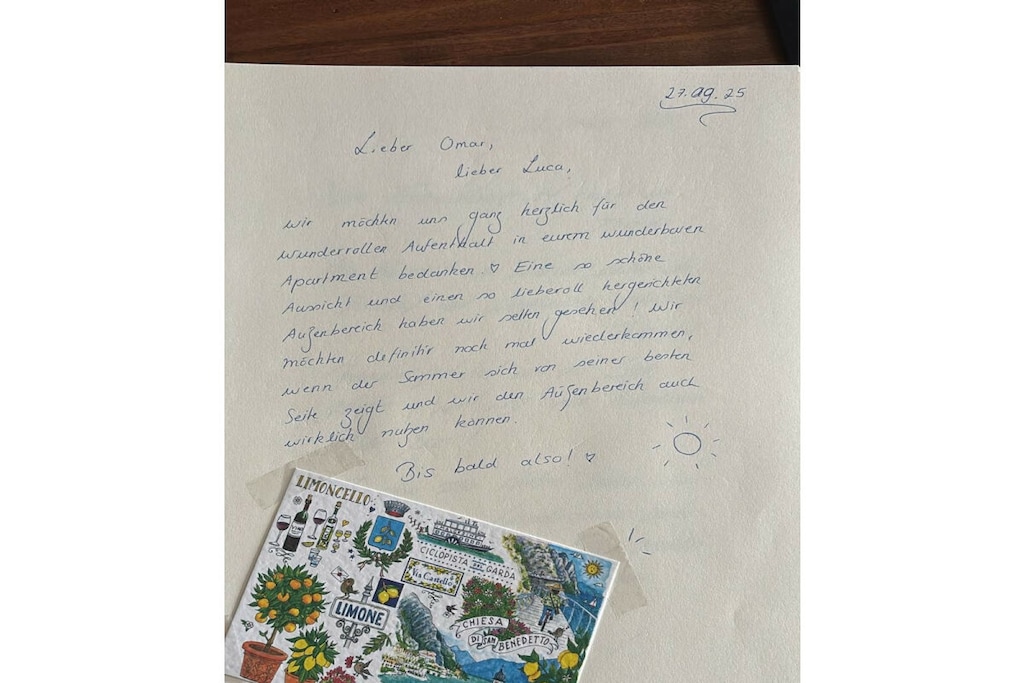 27.09.25
Lieber Omar,
lieber Luca,
wir möchten uns ganz herzlich für den
wundervollen Aufenthalt in eurem wunderbaren
Apartment bedanken. ♡ Eine so schöne
Aussicht und einen so liebevoll hergerichteten
Außenbereich haben wir selten gesehen! Wir
möchten definitiv noch mal wiederkommen,
wenn der Sommer sich von seiner besten
Seite zeigt und wir den Außenbereich auch
wirklich nutzen können.
Bis bald also! ♡
LIMONCELLO
CICLOPISTA DEL GARDA
Via Castello
LIMONE
CHIESA
DI SAN BENEDETTO